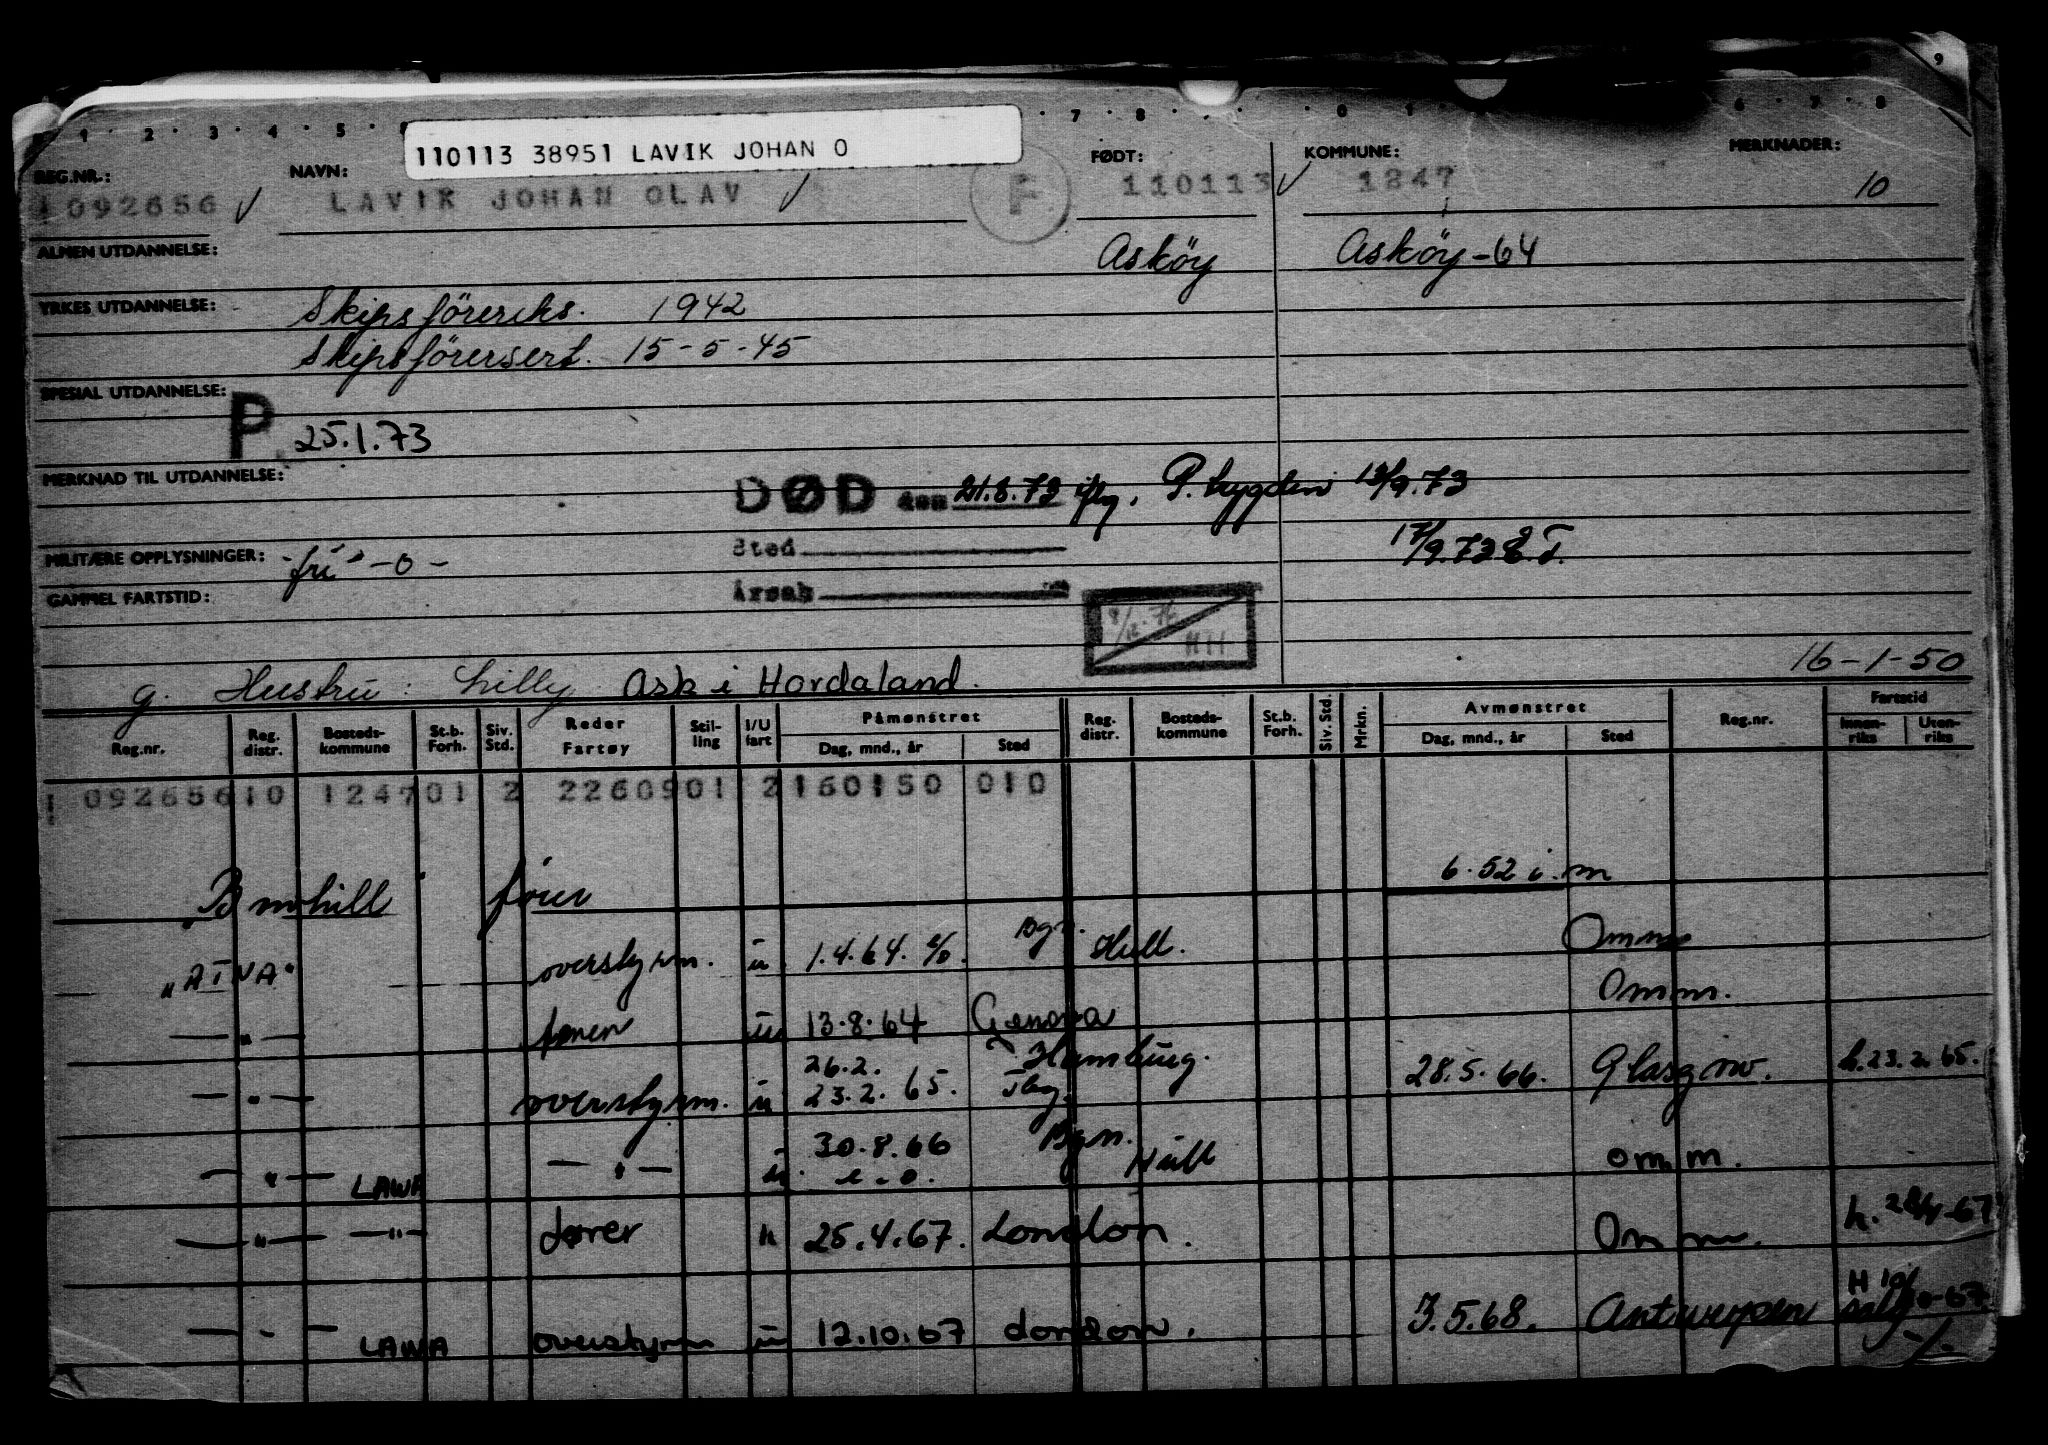 9
1 2 3 4 5 7 8 0 1 6 7 8
110113 38951 LAVIK JOHAN O
REG.NR.: NAVN: FØDT: KOMMUNE: MERKNADER:
1092656 LAVIK JOHAN OLAV F 110113 1247 10
ALMEN UTDANNELSE: Asköy Asköy-64
YRKES UTDANNELSE: Skipsförereks. 1942
Skipsförersert. 15-5-45
SPESIAL UTDANNELSE:
P. 25.1.73
MERKNAD TIL UTDANNELSE:
DØD den 21.8.73 iflg. P. trygden 13/9.73
MILITÆRE OPPLYSNINGER: "fri" -o- Sted 17/9.73
GAMMEL FARTSTID: Årsak
HH
16-1-50
g. Hustru: Lilly Ask i Hordaland.
Reg.nr. Reg. distr. Bosteds-kommune St.b. Forh. Siv. Std. Reder Fartøy Stil-ling I/U fart Påmønstret Dag, mnd., år Sted Reg. distr. Bosteds-kommune St.b. Forh. Siv. Std. Mrkn. Avmønstret Dag, mnd., år Sted Reg.nr. Fartstid Innen-riks Uten-riks
1092656 10 1247 01 2 22609 01 2 160150 010
fører 6.52 i.m
overstyrm. u 1.4.64. Bgn. Hull. Omm
— " — fører u 13.8.64 Genova Omm.
— " — overstyrm. u 26.2. 23.2.65. Hamburg. 28.5.66. Glasgow. h. 23.2.65.
— " — LAWA — " — u 30.8.66 e.o. Bgn. Hull omm.
— " — — " — fører u 25.4.67. London. Omm.
— " — LAWA overstyrm u 12.10.67 London. 3.5.68. Antwerpen